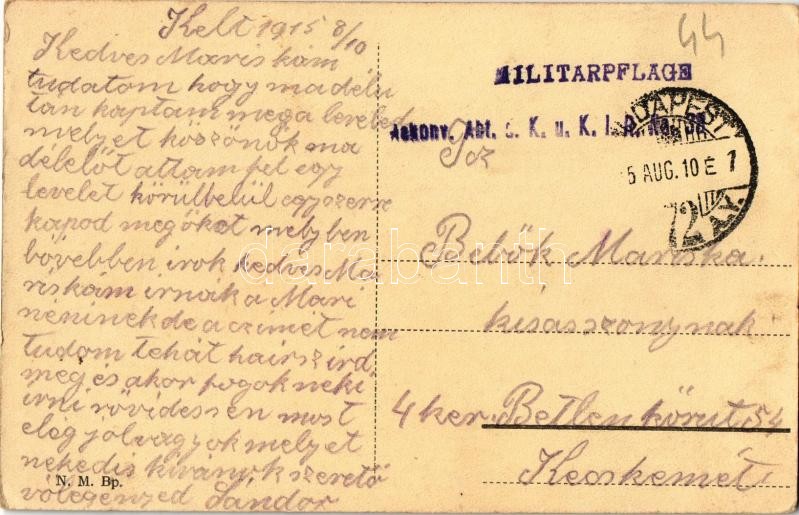 Kelt 1915 8/10
Kedves Mariskám
tudatom hogy ma délu
tán kaptam mega leveled
melyet köszönök ma
délélőt attam fel egy
levelet körülbelül egyszerre
kapod megőket melyben
bővebben irok kedves Ma
riskám irnák a Mari
néninek de a czimét nem
tudom tehát ha irsz ird
meg és akor fogok neki
irni rövidessen most
elég jól vagyok melyet
nekedis kivánok szerető
vőlegényed Sándor
N. M. Bp.
44
MILITÄRPFLAGE
Abt. d. K. u. K. I. R.
BUDAPEST
5 AUG. 10 E 7
72
Bebők Mariska
kisasszonynak
4 ker. Betlen körut 54
Kecskemét
darabanth